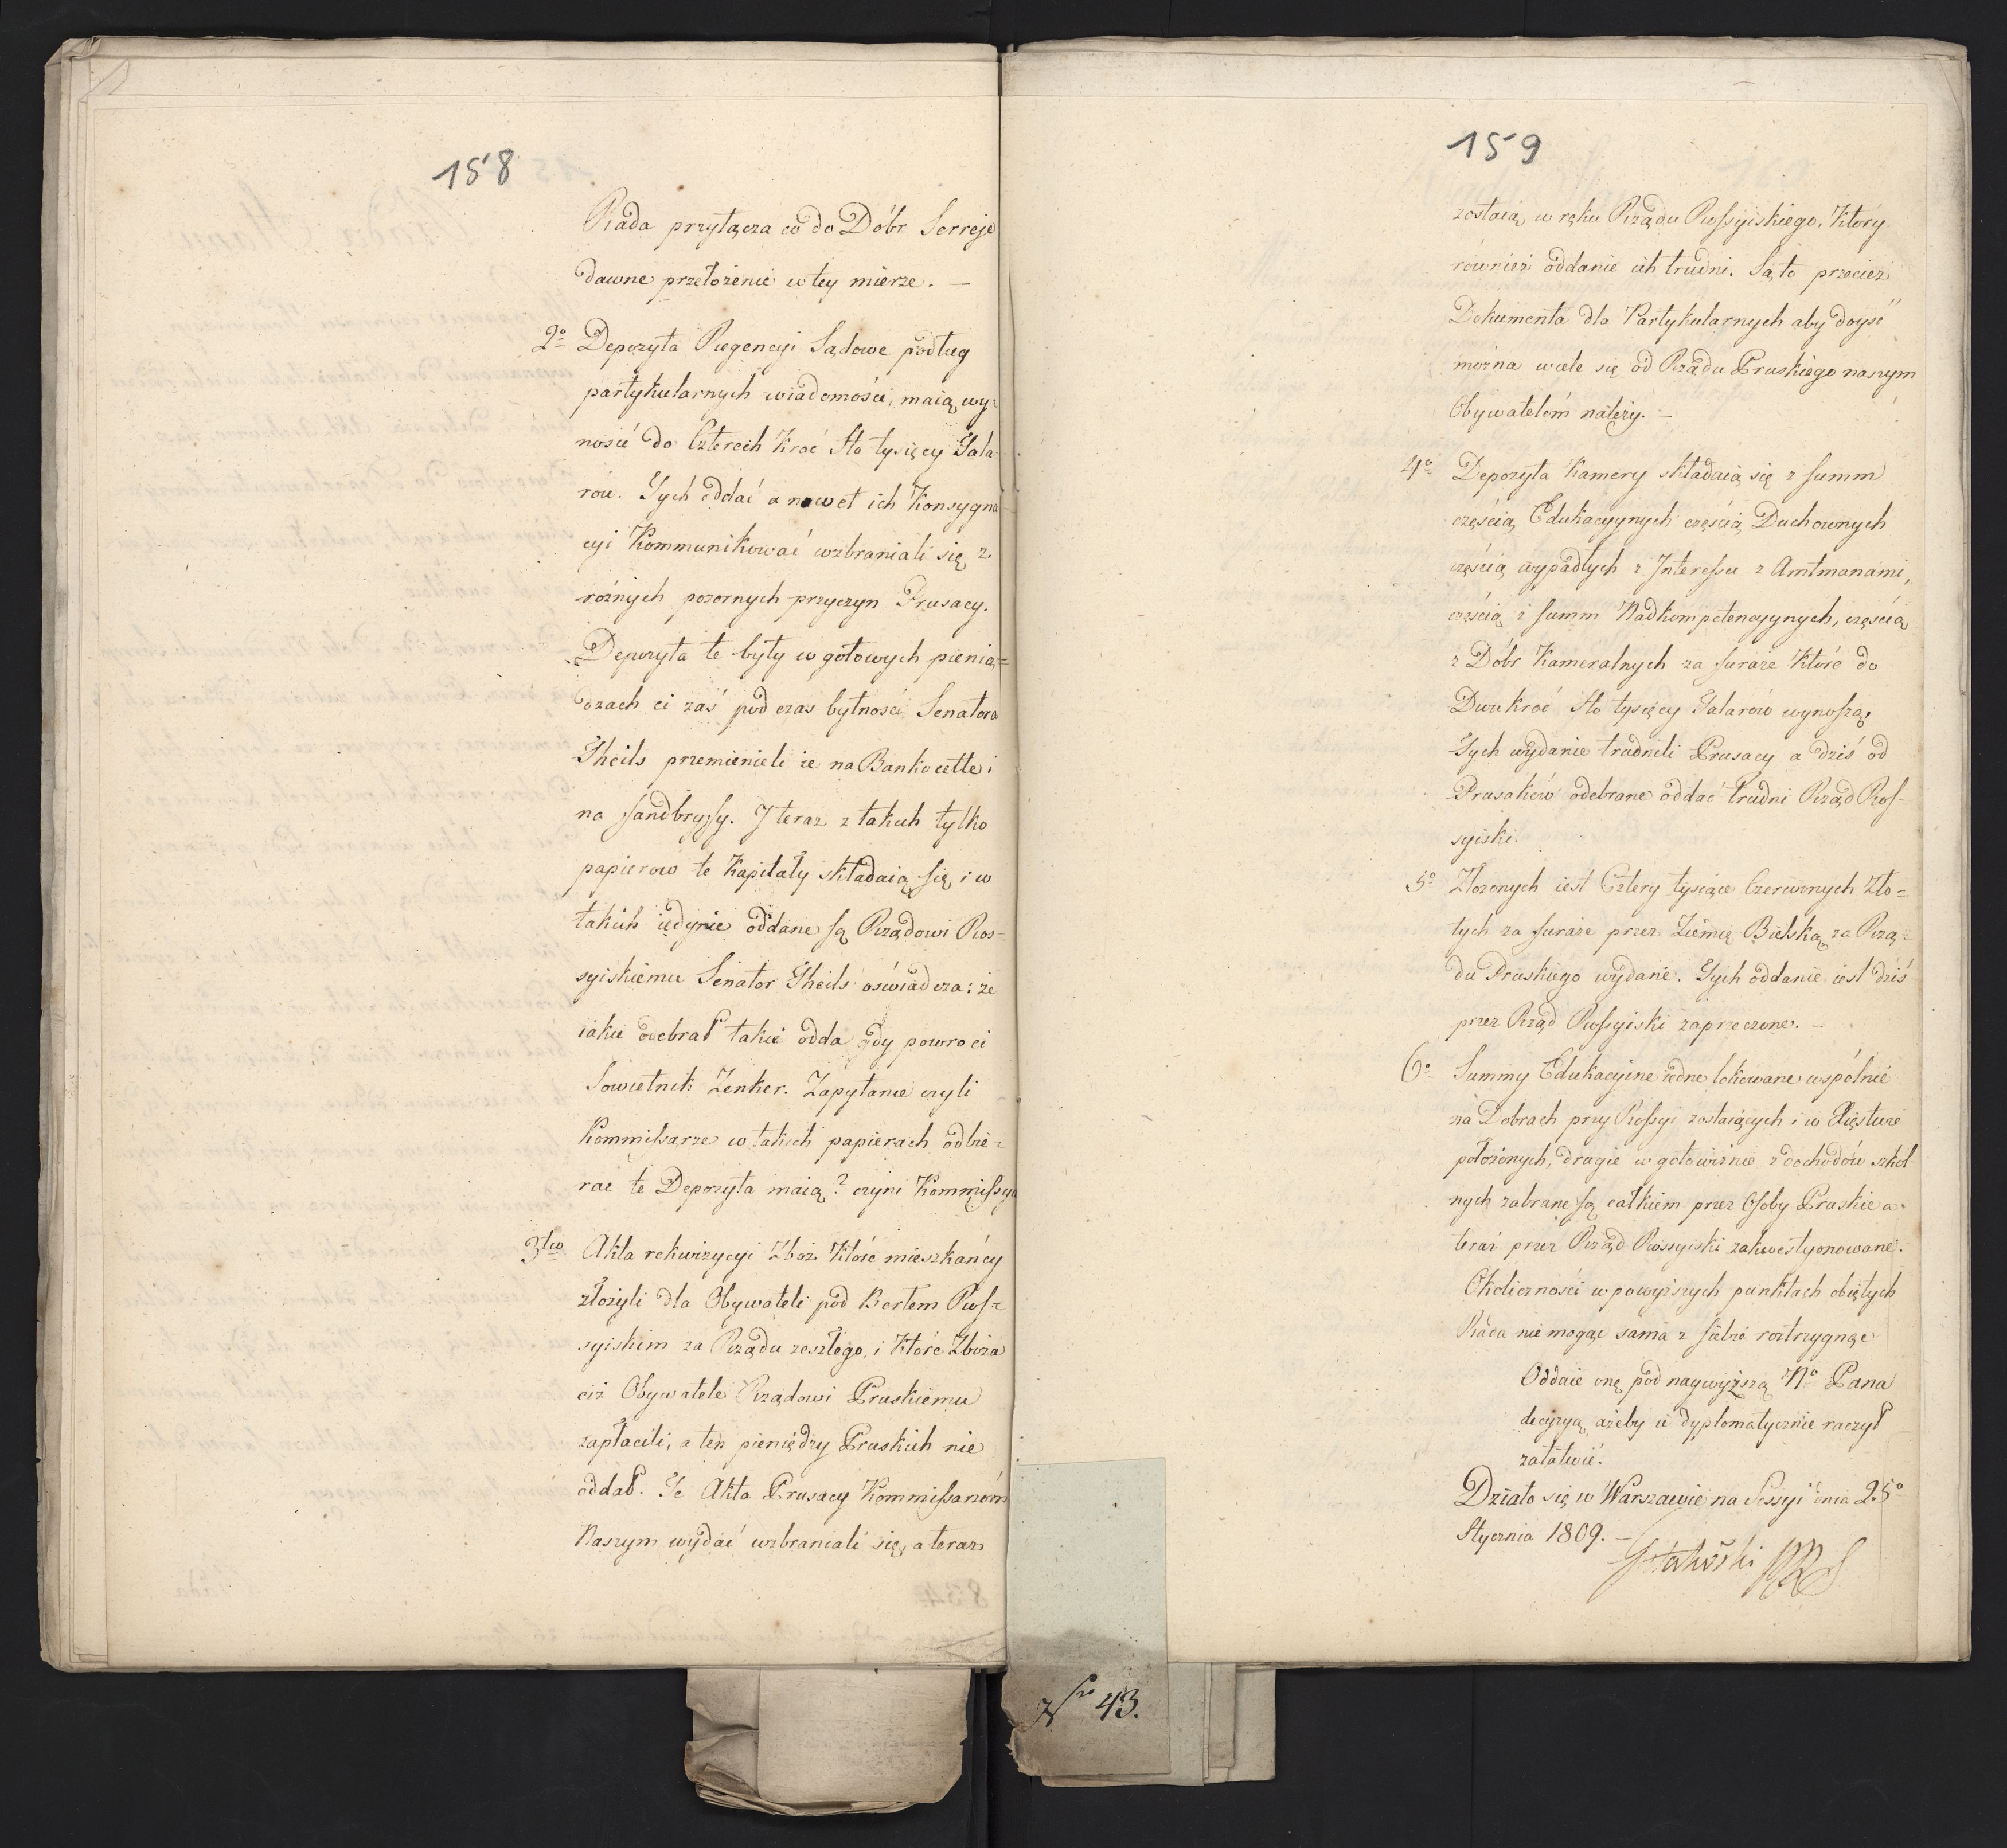 158
Rada przyłącza co do Dóbr Serreje
dawne przełożenie w tey mierze. —
2o Depozyta Regencyi Sądowe podług
partykularnych wiadomości, maią wy=
nosić do Czterech Kroć Sto tysięcy Tala
rów. Tych oddać a nawet ich Konsygna
cyi Kommunikować wzbraniali się z
różnych pozornych przyczyn Prusacy.
Depozyta te były w gotowych pienią=
dzach ci zaś pod czas bytności Senatora
Theils przemienieli ie na Bankocette i
na Fandbryffy. J teraz z takich tylko
papierow te Kapitały składaią się i w
takich iedynie oddane są Rządowi Ros=
syiskiemu Senator Theils oświadcza: że
iakie odebrał takie odda gdy powroci
Sowietnik Zenker. Zapytanie czyli
Kommissarze w takich papierach odbie=
rac te Depozyta maią? czyni Kommissya
3tio Akta rekwizycyi Zboż które mieszkańcy
złożyli dla Obywateli pod Berłem Ros=
syiskim za Rządu zeszłego, i które Zboża
ciż Obywatele Rządowi Pruskiemu
zapłacili, a ten pieniędzy Pruskich nie
oddał. Te Akta Prusacy Kommissarzom
Naszym wydać wzbraniali się, a teraz
159
zostaią w ręku Rządu Rossyiskiego, który
również oddanie ich trudni. Są to przecież
Dokumenta dla Partykularnych aby doyść
można wiele się od Rządu Pruskiego naszym
Obywatelom należy. —
4o Depozyta Kamery składaią się z summ
częścią Edukacyynych częścią Duchownych
częścią wypadłych z Jnteressu z Amtmanami,
częścią z summ Nadkompetencyynych, częścią
z Dóbr Kameralnych za furaże które do
Dwukroć Sto tysięcy Talarów wynoszą,
Tych wydanie trudnili Prusacy a dziś od
Prusaków odebrane oddać trudni Rząd Ros=
syiski.
5o Złożonych iest Cztery tysiące Czerwonych Zło=
tych za furaże przez Ziemię Bielską za Rzą=
du Pruskiego wydane. Tych oddanie iest dziś
przez Rząd Rossyiski zaprzeczone. —
6o Summy Edukacyine iedne lokowane wspólnie
na Dobrach przy Rossyi zostaiących i w Xięstwie
położonych, drugie w gotowiznie z dochodów szkol
nych zabrane są całkiem przez Osoby Pruskie a
teraz przez Rząd Rossyiski zakwestyonowane.
Okoliczności w powyższych punktach obiętych
Rada nie mogąc sama z siebie roztrzygnąc
Oddaie onę pod naywyższą No Pana
decyzyą ażeby ie dyplomatycznie raczył
załatwić.
Działo się w Warszawie na Sessyi dnia 25o
Stycznia 1809. —
No 43.